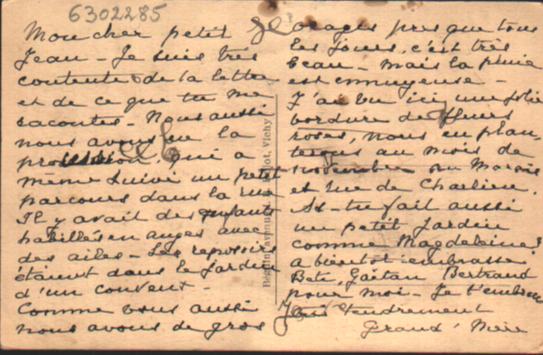 6302285
Mon cher petit
Jean - Je suis très
contente de la lettre
et de ce que tu me
racontes - Nous aussi
nous avons eu la
procession qui a
même suivi un petit
parcours dans la rue
Il y avait des enfants
habillés en anges avec
des ailes - Les reposoirs
étaient dans le jardin
d'un couvent -
Comme vous aussi
nous avons de gros
orages presque tous
les jours, c'est très
beau - mais la pluie
est ennuyeuse -
J'ai vu ici une jolie
bordure de fleurs
roses, nous en plan
terons au mois de
novembre au Marais
et rue de Charlieu.
As-tu fait aussi
un petit jardin
comme Magdeleine?
A bientôt embrasse
Bete, Gaëtan Bertrand
pour moi - Je t'embrasse
tendrement
Grand'Mère
Vichy